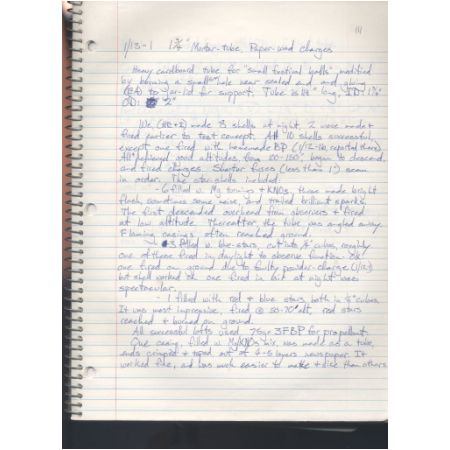 1/13-1 1 3/4" Mortar-tube, Paper-wad charges
Heavy cardboard tube for "small festival balls", modified
by boring a small hole near sealed end and gluing
to jar-lid for support. Tube is long, ID: 1 3/4"
OD: 2"
We made 8 shells at night, 2 were made +
fired earlier to test concept. All 10 shells successful,
except one fired with homemade BP (1/12-1b, reported there).
All achieved good altitudes, from 100-150', began to descend,
and fired charges. Shorter fuses (less than 1") seem
in order. The star shells included:
- 6 filled w. Mg + KNO3, these made bright
flash, sometimes some noise, and trailed brilliant sparks.
The first descended overhead from observers + fired
at low altitude. Thereafter, the tube was angled away.
Flaming casings often reached ground.
- 3 filled w. blue stars, cut into 1/4" cubes, roughly
one of these fired in daylight to observe function - OK
one fired on ground due to faulty powder charge (1/12)
but shell worked ok. one fired in lot at night was
spectacular.
- 1 filled with red + blue stars, both in cubes.
It was most impressive, fired @ 50-70' alt, red stars
reached + burned on ground.
All successful lofts used 75gr 3FBP for propellant.
One casing, filled w. Mg/KNO3 mix, was made as a tube,
ends crimped + taped, out of 4-5 layers newspaper. It
worked fine, and was much easier to make + than others